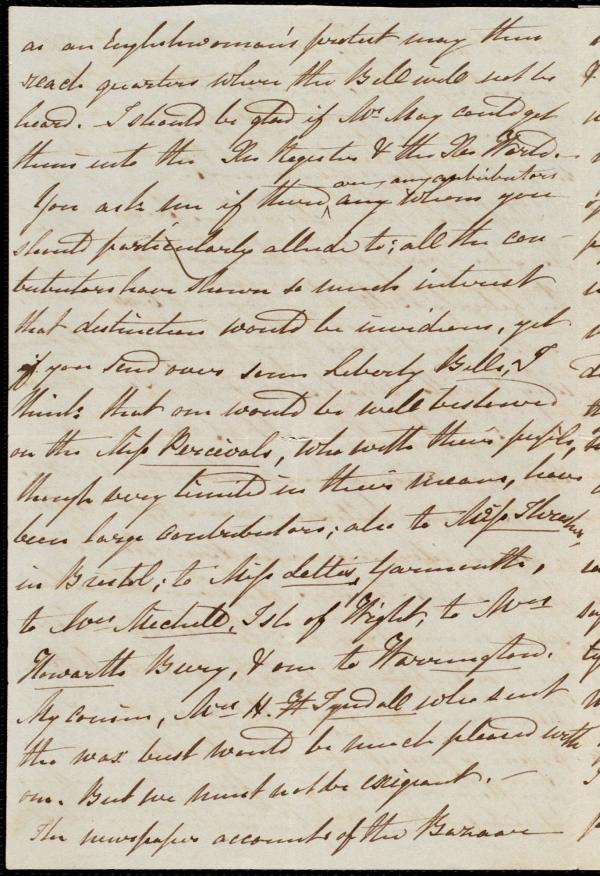 as an Englishwoman's protest may then
reach quarters where the Bell will not be
heard. - I should be glad if Mrs May could get
them into the Xn Register & the Xn World. -
are any contributors
You ask me if there any whom you
should particularly allude to; all the con-
tributors have shown so much interest
that distinction would be invidious, yet
if you send over some Liberty Bells, I
think that one would be well bestowed
on the Miss Percivals, who with their pupils,
though very limited in their means, have
been large contributors; also to Miss
in Bristol; to Miss Yarmouth,
to Mrs Mechell, Isle of Wight, to Mrs
Howarth Bury, & one to Warrington.
My cousin, Mrs H. Tyndall who sent
the wax bust would be much pleased with
one. But we must not be exigeant. -
The newspaper accounts of the Bazaar